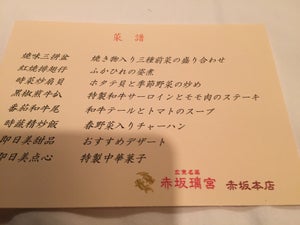 菜譜
焼味三拼盆 焼き物入り三種前菜の盛り合わせ
紅焼排翅仔 ふかひれの姿煮
時菜炒扇貝 ホタテ貝と季節野菜の炒め
黒椒煎牛扒 特製和牛サーロインとモモ肉のステーキ
番茄和牛尾 和牛テールとトマトのスープ
時蔬精炒飯 春野菜入りチャーハン
即日美甜品 おすすめデザート
即日美点心 特製中華菓子
広東名菜
赤坂璃宮 赤坂本店